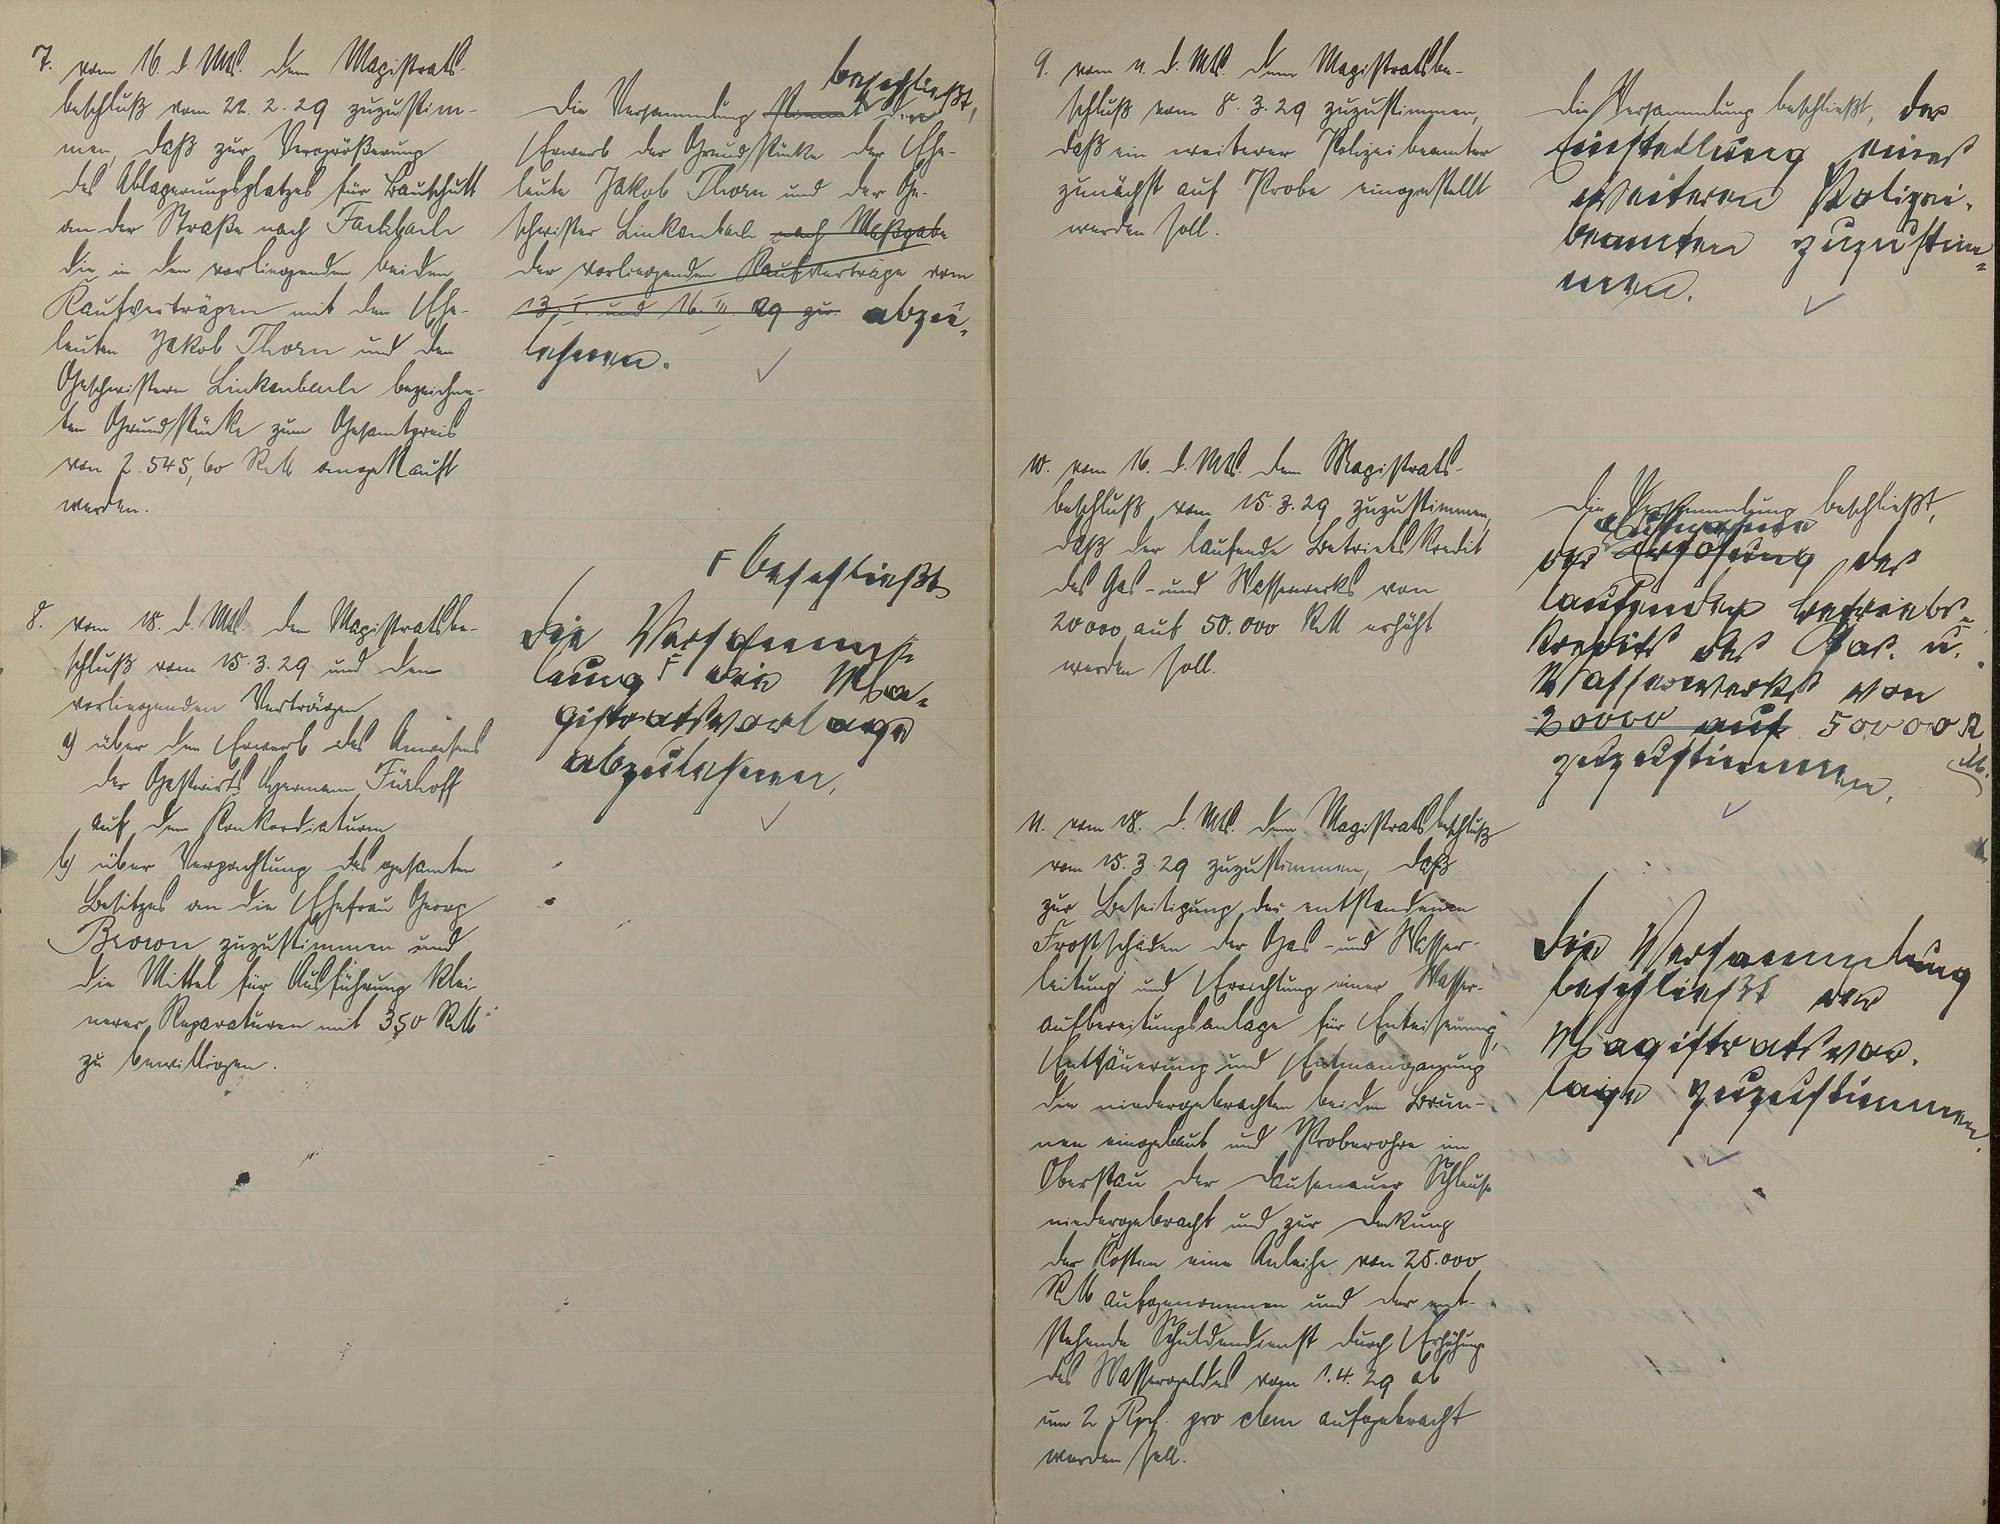 7. vom 16. d. Mts. dem Magistrats-
beschluß vom 22.2.29 zuzustim-
men, daß zur Vergrößerung
des Ablagerungsplatzes für Bauschutt
an der Straße nach Fachbach
die in den vorliegenden beiden
Kaufverträgen mit den Ehe-
leuten Jakob Thorn und den
Geschwistern Linkenbach bezeichne-
ten Grundstücke zum Gesamtpreis
von 2.545,60 RM angekauft
werden.
beschließt,
Die Versammlung stimmt den
Erwerb der Grundstücke der Ehe-
leute Jakob Thorn und der Ge-
schwister Linkenbach nach Maßgabe
der vorliegenden Kaufverträge vom
13. I. und 16. II. 29 zu. abzu-
lehnen.
8. vom 18. d. Mts. dem Magistratsbe-
schluß vom 15.3.29 und den
vorliegenden Verträgen
a) über den Erwerb des Anwesens
des Gastwirts Hermann Fürhoff
auf dem Konkordiaturm
b) über Verpachtung des gesamten
Besitzes an die Ehefrau Georg
Brown zuzustimmen und
die Mittel für Ausführung klei-
nerer Reparaturen mit 350 RM
zu bewilligen.
F beschließt
Die Versamm-
lung F die Ma-
gistratsvorlage
abzulehnen.
9. vom 11. d. Mts. dem Magistratsbe-
schluß vom 8.3.29 zuzustimmen,
daß ein weiterer Polizeibeamter
zunächst auf Probe eingestellt
werden soll.
Die Versammlung beschließt, der
Einstellung eines
weiteren Polizei-
beamten zuzustim-
men.
10. vom 16. d. Mts. dem Magistrats-
beschluß vom 15.3.29 zuzustimmen,
daß der laufende Betriebskredit
des Gas- und Wasserwerks von
20000 auf 50.000 RM erhöht
werden soll.
Die Versammlung beschließt,
Aufnahme
der Erhöhung des
laufenden Betriebs-
kredits des Gas- u.
Wasserwerks von
20000 auf 50000 R
M.
zuzustimmen.
11. vom 18. d. Mts. dem Magistratsbeschluß
vom 15.3.29 zuzustimmen, daß
zur Beseitigung der entstandenen
Frostschäden der Gas- und Wasser-
leitung und Errichtung einer Wasser-
aufbereitungsanlage für Enteisenung,
Entsäuerung und Entmanganung
die niedergebrachten beiden Brun-
nen eingebaut und Proberohre im
Oberstau der Dausenauer Schleuse
niedergebracht und zur Deckung
der Kosten eine Anleihe von 25.000
RM aufgenommen und der ent-
stehende Schuldendienst durch Erhöhung
des Wassergeldes vom 1.4.29 ab
um 2 Rpf. pro cbm aufgebracht
werden soll.
Die Versammlung
beschließt der
Magistratsvor-
lage zuzustimmen.